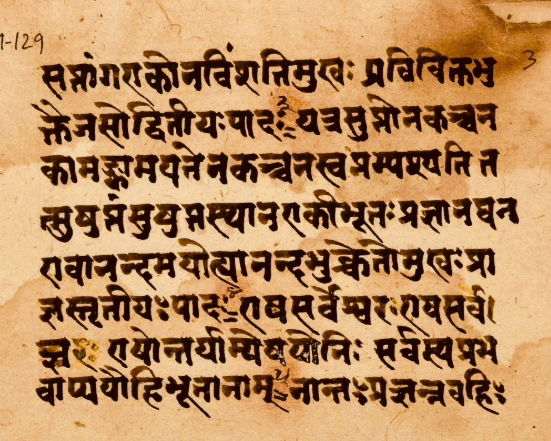 -129
3
सप्तांगएकोनविंशतिमुखः प्रविविक्तभु
क्तैजसोद्वितीयःपादः३ यत्रसुप्तोनकञ्चन
कामङ्कामयतेनकञ्चनस्वप्नम्पश्यतित
त्सुषुप्तंसुषुप्तस्थानएकीभूतःप्रज्ञानघन
एवानन्दमयोह्यानन्दभुक्चेतोमुखःप्रा
ज्ञस्तृतीयःपादः एषसर्वेश्वरःएषसर्व।
ज्ञः एषोन्तर्याम्येषयोनिः सर्वस्यप्रभ
वाप्ययौहिभूतानाम् नान्तःप्रज्ञन्नवहिः